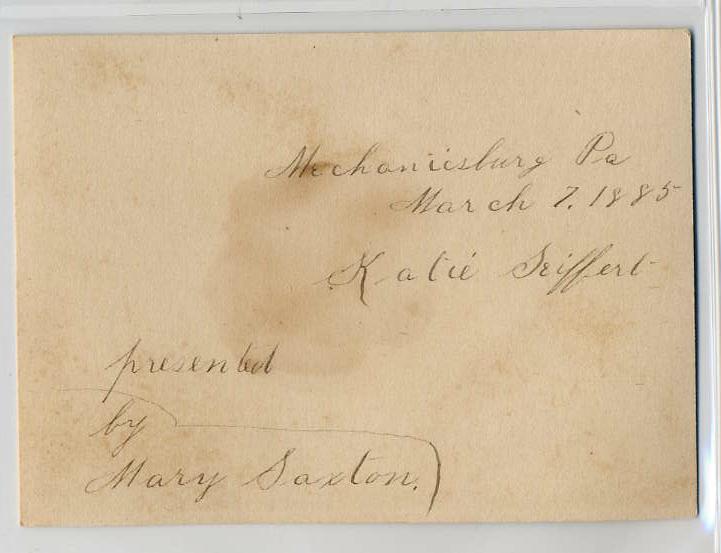 Mechanicsburg Pa
March 7, 1885
Katie Seiffert
presented
by
Mary Saxton.